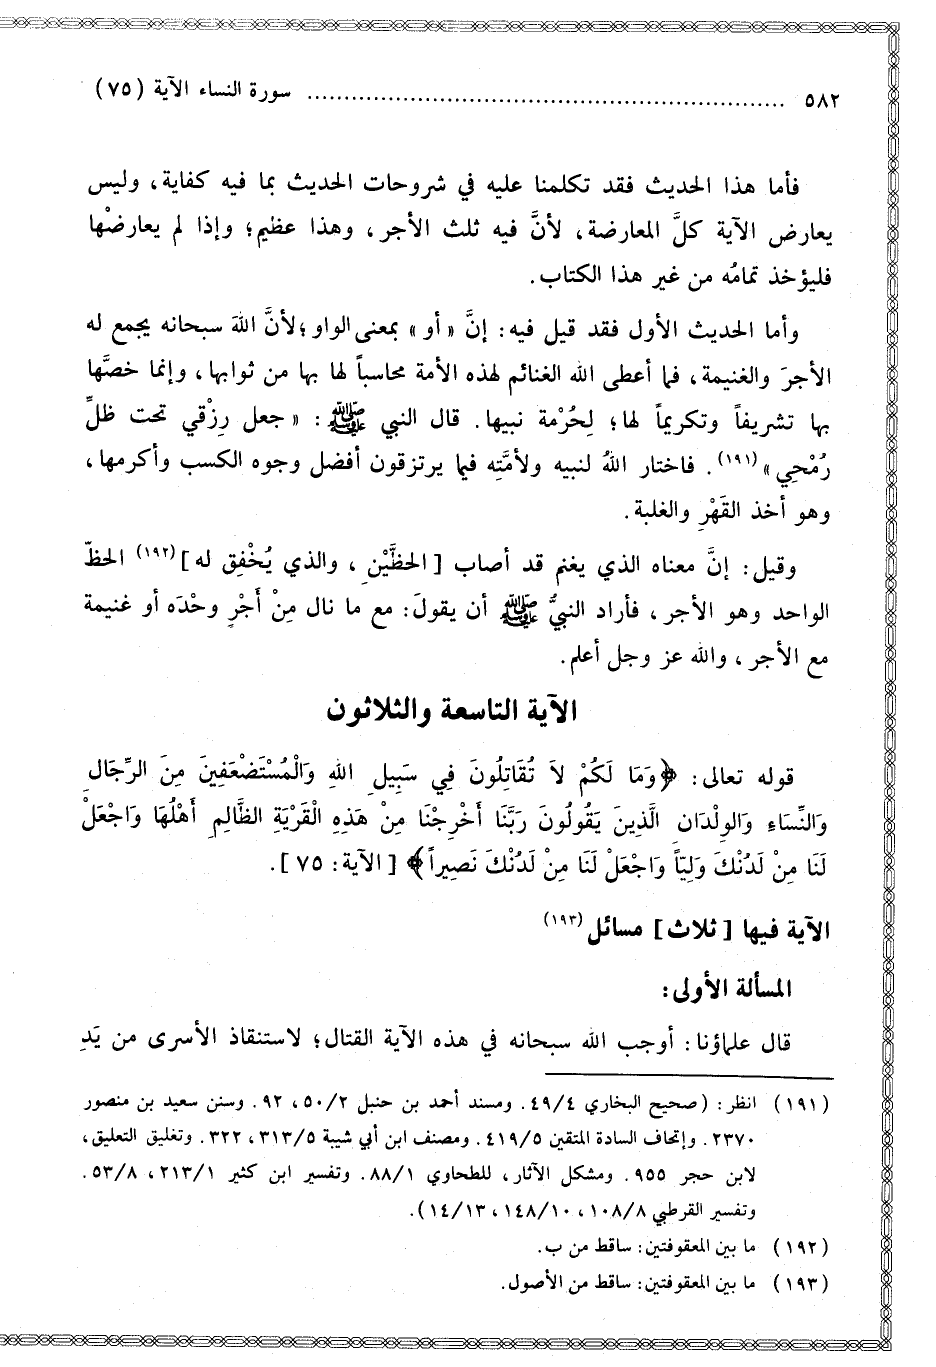 ٥٨٢ ................................................................ سورة النساء الآية (٧٥)
فأما هذا الحديث فقد تكلمنا عليه في شروحات الحديث بما فيه كفاية، وليس
يعارض الآية كلَّ المعارضة، لأنَّ فيه ثلث الأجر، وهذا عظيم؛ وإذا لم يعارضْها
فليؤخذ تمامُه من غير هذا الكتاب.
وأما الحديث الأول فقد قيل فيه: إنَّ «أو» بمعنى الواو؛ لأنَّ اللهَ سبحانه يجمع له
الأجرَ والغنيمة، فما أعطى الله الغنائم لهذه الأمة محاسباً لها بها من ثوابها، وإنما خصَّها
بها تشريفاً وتكريماً لها؛ لِحُرْمة نبيها. قال النبي ﷺ: «جعل رِزْقي تحت ظلِّ
رُمْحِي»(١٩١). فاختار اللهُ لنبيه ولأمَّتِه فيما يرتزقون أفضل وجوه الكسب وأكرمها،
وهو أخذ القَهْرِ والغلبة.
وقيل: إنَّ معناه الذي يغنم قد أصاب [الحظَّيْنِ، والذي يُخْفِق له](١٩٢) الحظّ
الواحد وهو الأجر، فأراد النبيُّ ﷺ أن يقولَ: مع ما نال مِنْ أَجْرٍ وحْدَه أو غنيمة
مع الأجر، والله عز وجل أعلم.
الآية التاسعة والثلاثون
قوله تعالى: ﴿وَمَا لَكُمْ لاَ تُقَاتِلُونَ فِي سَبِيلِ اللهِ وَالْمُسْتَضْعَفِينَ مِنَ الرِّجَالِ
وَالنِّسَاءِ وَالوِلْدَانِ الَّذِينَ يَقُولُونَ رَبَّنَا أَخْرِجْنَا مِنْ هَذِهِ الْقَرْيَةِ الظَّالِمِ أَهْلُهَا وَاجْعَلْ
لَنَا مِنْ لَدُنْكَ وَلِيّاً وَاجْعَلْ لَنَا مِنْ لَدُنْكَ نَصِيراً﴾ [الآية: ٧٥].
الآية فيها [ثلاث] مسائل(١٩٣)
المسألة الأولى:
قال علماؤنا: أوجب الله سبحانه في هذه الآية القتال؛ لاستنقاذ الأسرى من يَدِ
(١٩١) انظر: (صحيح البخاري ٤٩/٤. ومسند أحمد بن حنبل ٥٠/٢، ٩٢. وسنن سعيد بن منصور
٢٣٧٠. وإتحاف السادة المتقين ٤١٩/٥. ومصنف ابن أبي شيبة ٣١٣/٥، ٣٢٢. وتغليق التعليق،
لابن حجر ٩٥٥. ومشكل الآثار، للطحاوي ٨٨/١. وتفسير ابن كثير ٢١٣/١، ٥٣/٨.
وتفسير القرطبي ١٠٨/٨، ١٤٨/١٠، ١٤/١٣).
(١٩٢) ما بين المعقوفتين: ساقط من ب.
(١٩٣) ما بين المعقوفتين: ساقط من الأصول.